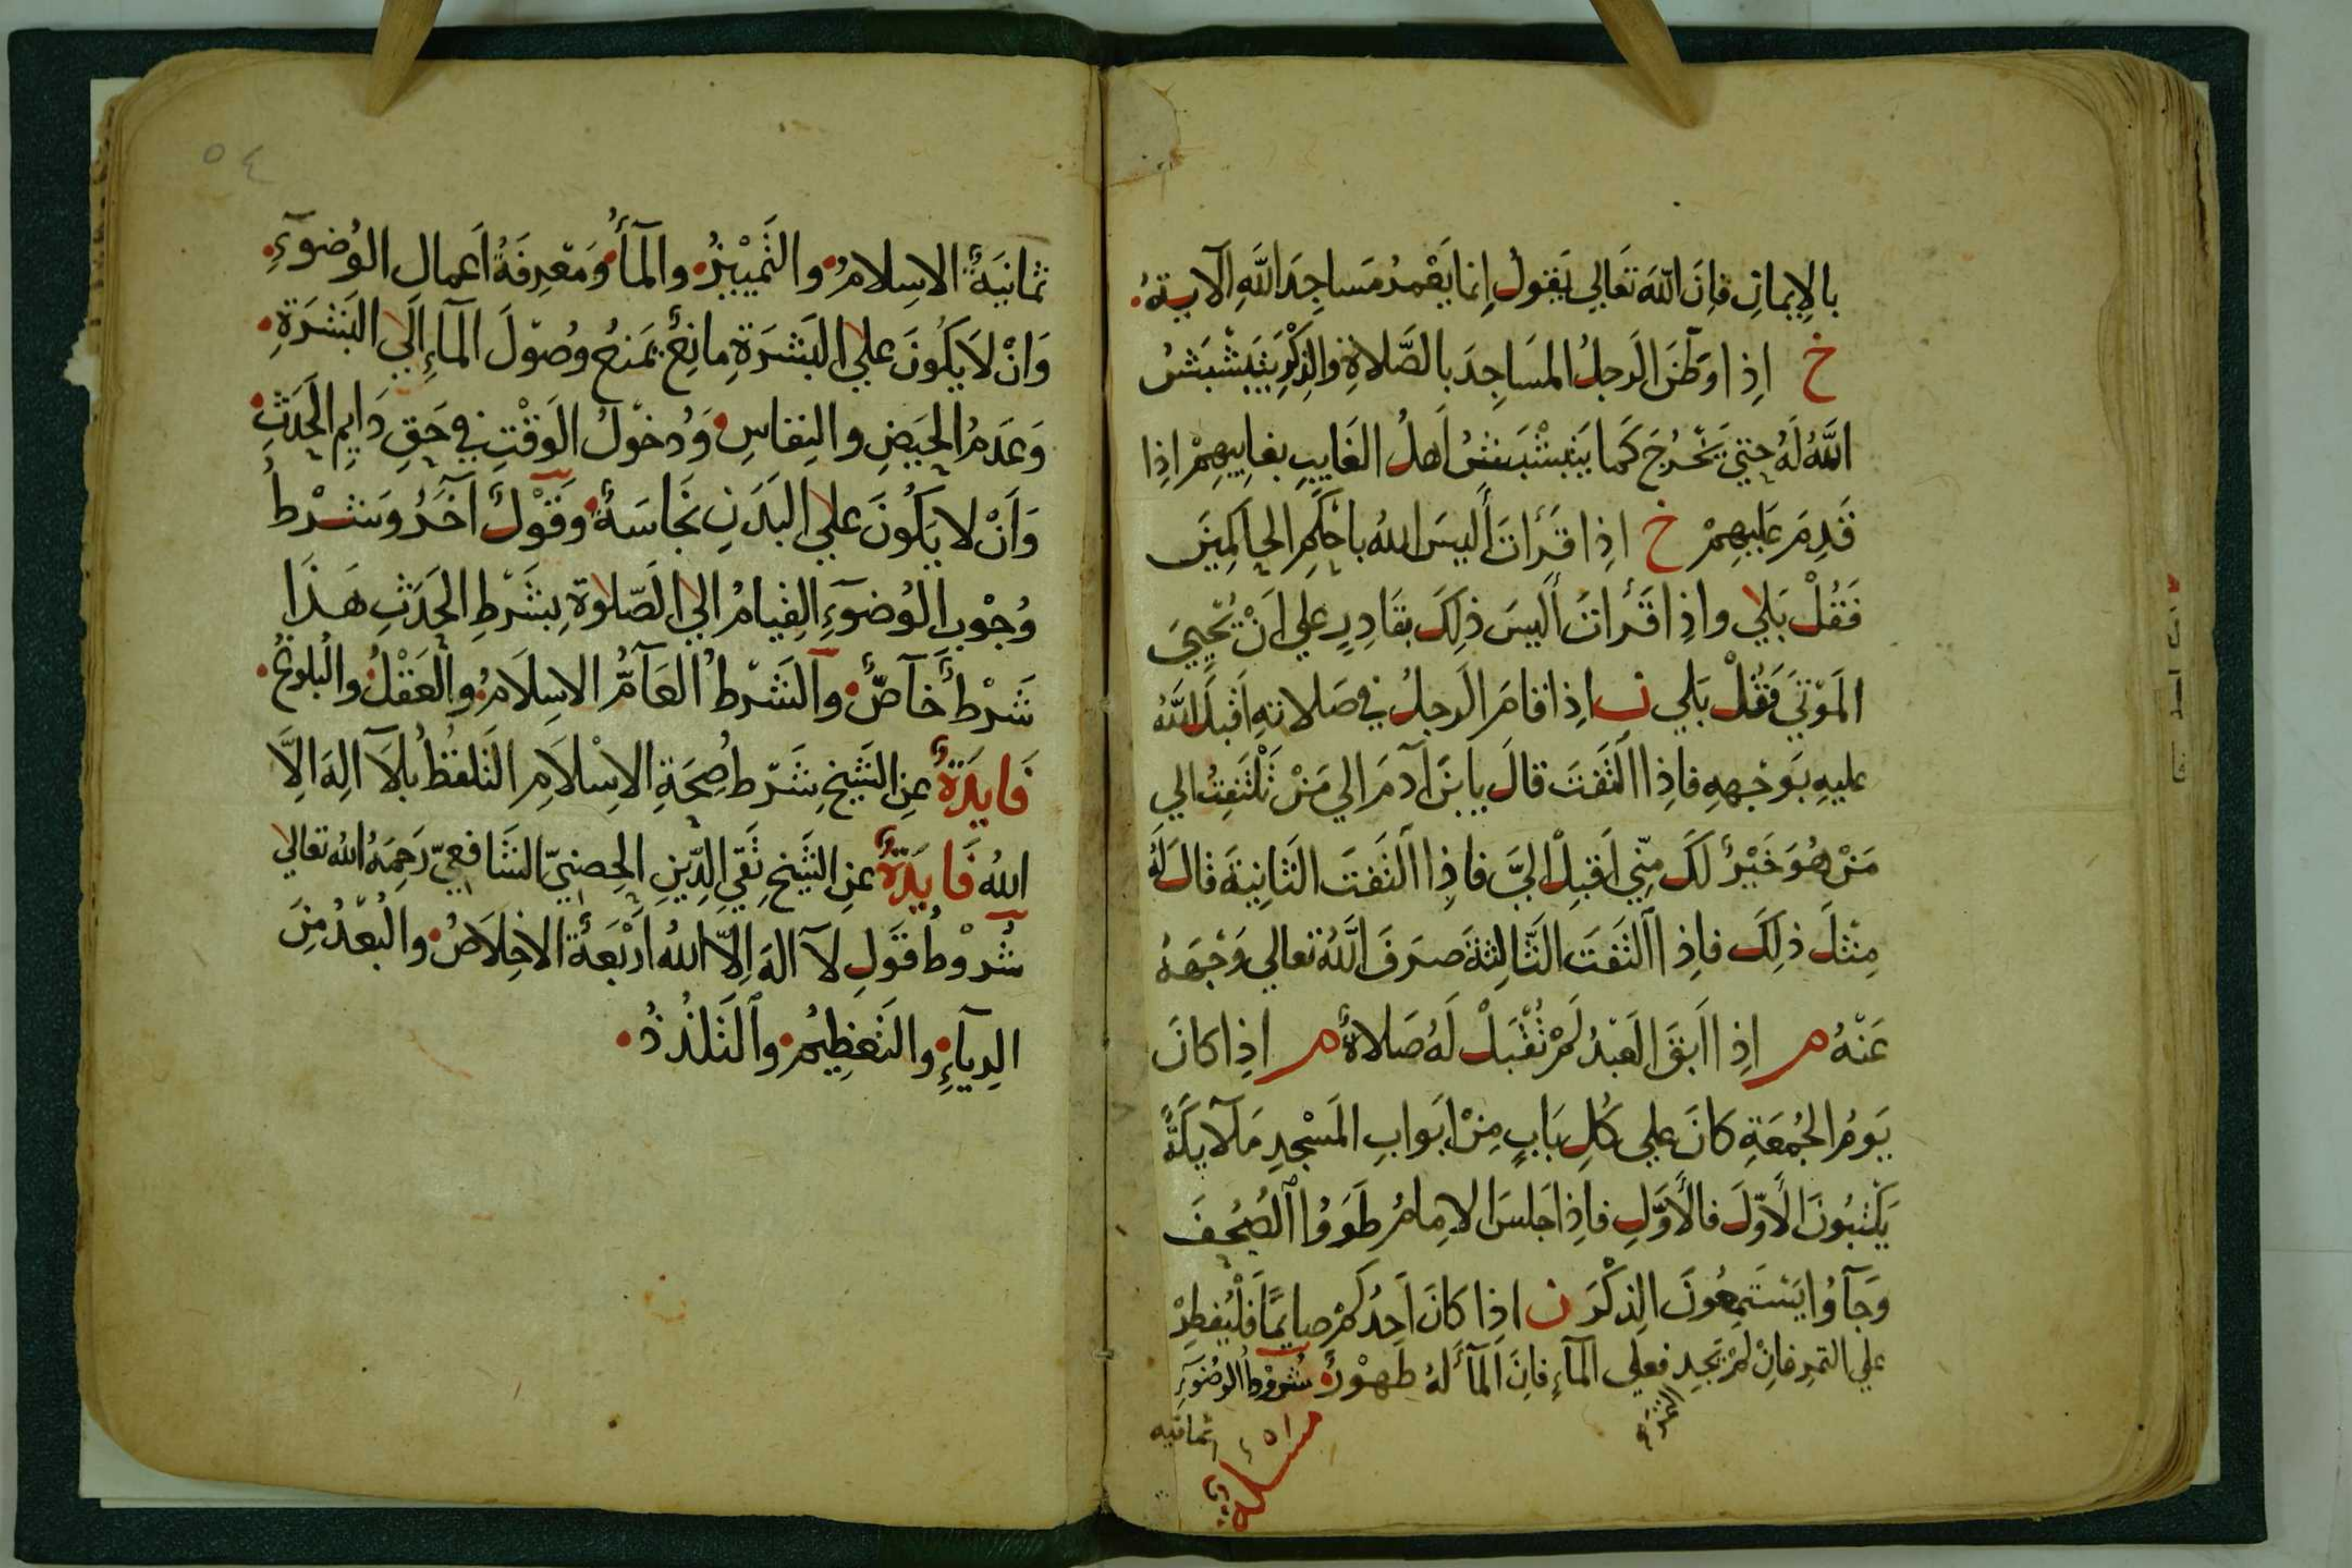 بالإيمان فإن الله تعالي يقول إنما يعمر مساجد الله الآية
خ إذا وطن الرجل المساجد بالصلاة والذكر يتبشبش
الله له حتي يخرج كما يتبشبش أهل الغايب بغايبهم إذا
قدم عليهم خ اذا قرات أليس الله باحكم الحاكمين
فقل بلي واذا قرأت أليس ذلك بقادر علي أن يحيي
الموتي فقل بلي ن اذا قام الرجل في صلاته أقبل الله
عليه بوجهه فاذا التفت قال يا بن آدم الي من تلتفت الي
من هو خير لك مني أقبل الي فاذا التفت الثانية قال له
مثل ذلك فاذا التفت الثالثة صرف الله تعالي وجهه
عنه م اذا ابق العبد لم تقبل له صلاة م اذا كان
يوم الجمعة كان علي كل باب من ابواب المسجد ملآيكة
يكتبون الأول فالأول فاذا جلس الامام طووا الصحف
وجآوا يستمعون الذكر ن اذا كان أحدكم صايما فليفطر
علي التمر فان لم تجد فعلي المآء فان المآ له طهور شروط الوضوء
ثمانيه
مسئلة
٥٤
ثمانية الاسلام والتمييز والمآ ومعرفة اعمال الوضوء
وان لا يكون علي البشرة مانع يمنع وصول المآء الي البشرة
وعدم الحيض والنفاس ودخول الوقت في حق دايم الحدث
وأن لا يكون علي البدن نجاسة وقول آخر وشرط
وجوب الوضوء القيام الي الصلوة بشرط الحدث هذا
شرط خآص والشرط العآم الاسلام والعقل والبلوغ
فايدة عن الشيخ شرط صحة الاسلام التلفظ بلا اله الا
الله فايدة عن الشيخ تقي الدين الحصني الشافعي رحمه الله تعالي
شروط قول لا اله الا الله اربعة الاخلاص والبعد من
الريآء والتعظيم والتلذذ